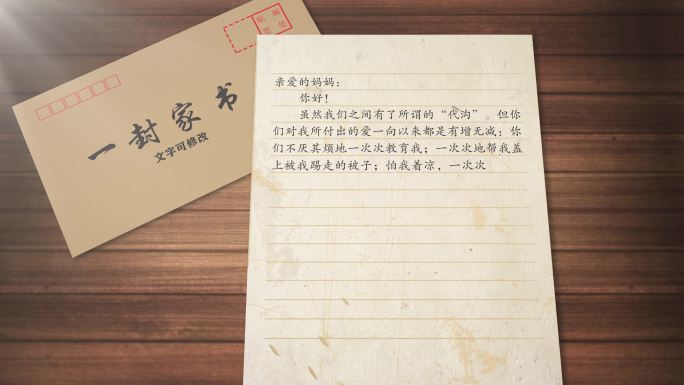 贴 邮
票 处
一封家书
文字可修改
亲爱的妈妈：
你好！
虽然我们之间有了所谓的“代沟”。但你
们对我所付出的爱一向以来都是有增无减：你
们不厌其烦地一次次教育我；一次次地帮我盖
上被我踢走的被子；怕我着凉，一次次